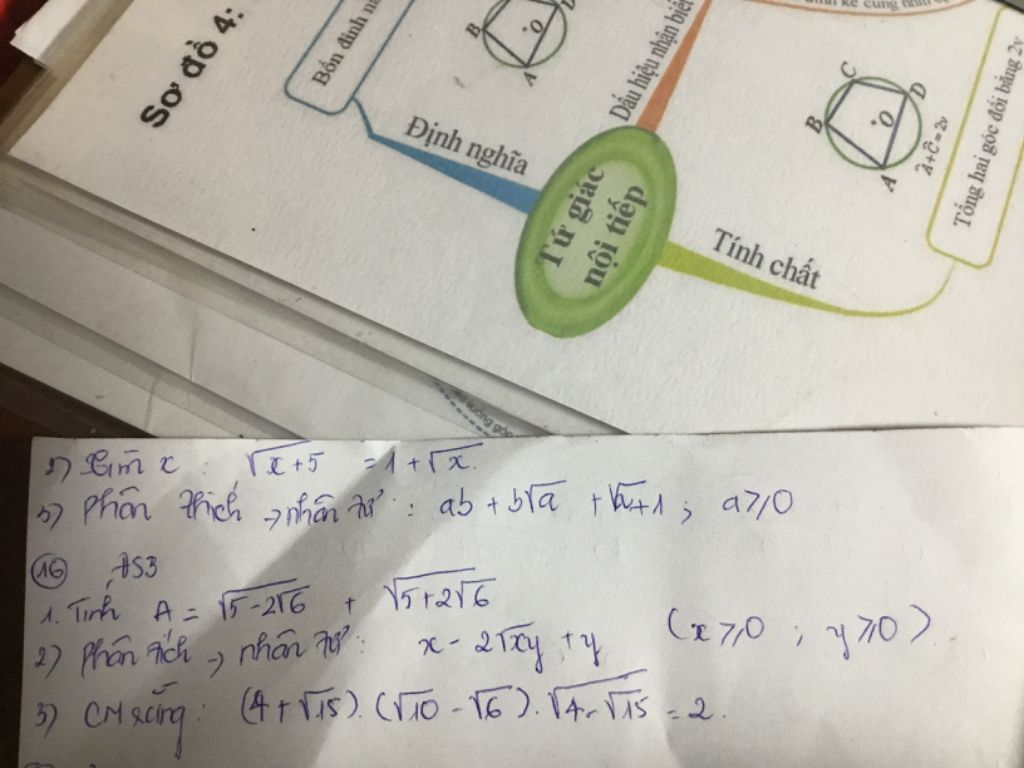 Sơ đồ 4:
Bốn đỉnh
B
O
D
A
Định nghĩa
Dấu hiệu nhận biết
Tứ giác
nội tiếp
Tính chất
B
C
D
O
A
Â+Ĉ=2v
Tổng hai góc đối bằng 2v
vuông góc
2) Tìm x : √(x+5) = 1 + √x.
3) Phân thích → nhân tử : ab + b√a + √a+1 ; a≥0
(16) ĐS3
1. Tính A = √(5-2√6) + √(5+2√6)
2) Phân tích → nhân tử: x - 2√xy + y (x≥0 ; y≥0)
3) CM rằng: (4+√15).(√10 - √6).√(4-√15) = 2.